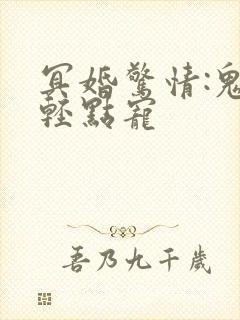 冥婚驚情:鬼
輕點寵
吾乃九千歲